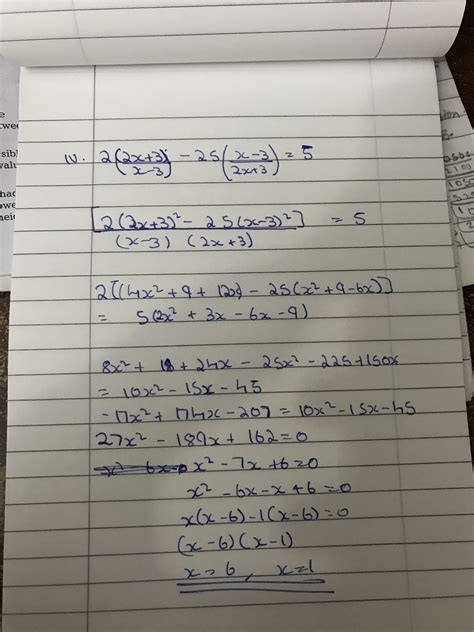 IV. 2(2x+3/x-3) - 25(x-3/2x+3) = 5
[2(2x+3)² - 25(x-3)²] / (x-3) (2x+3) = 5
2[(4x² + 9 + 12x) - 25(x² + 9 - 6x)]
= 5(2x² + 3x - 6x - 9)
8x² + 18 + 24x - 25x² - 225 + 150x
= 10x² - 15x - 45
-17x² + 174x - 207 = 10x² - 15x - 45
27x² - 189x + 162 = 0
x² - 7x + 6 = 0
x² - 6x - x + 6 = 0
x(x-6) - 1(x-6) = 0
(x-6) (x-1)
x = 6, x = 1